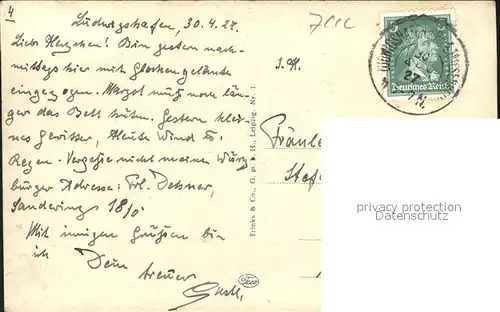 4
Ludwigshafen, 30.4.27.
Liebs Herzchen! Bin gestern nach-
mittags hier mit Glockengeläute
eingezogen. Margot muß noch län-
ger das Bett hüten. Gestern klei-
nes Gewitter, Heute Wind u.
Regen. Vergesse nicht meine Würz-
burger Adresse: Frl. Dehner,
Sanderring 18/0.
Mit innigen Grüßen bin
ich
Dein
treuer
Gustl.
Trinks & Co., G. m. b. H., Leipzig. Nr. 1.
Trico
Deutsches Reich
27
Fräule
privacy protection
Datenschutz